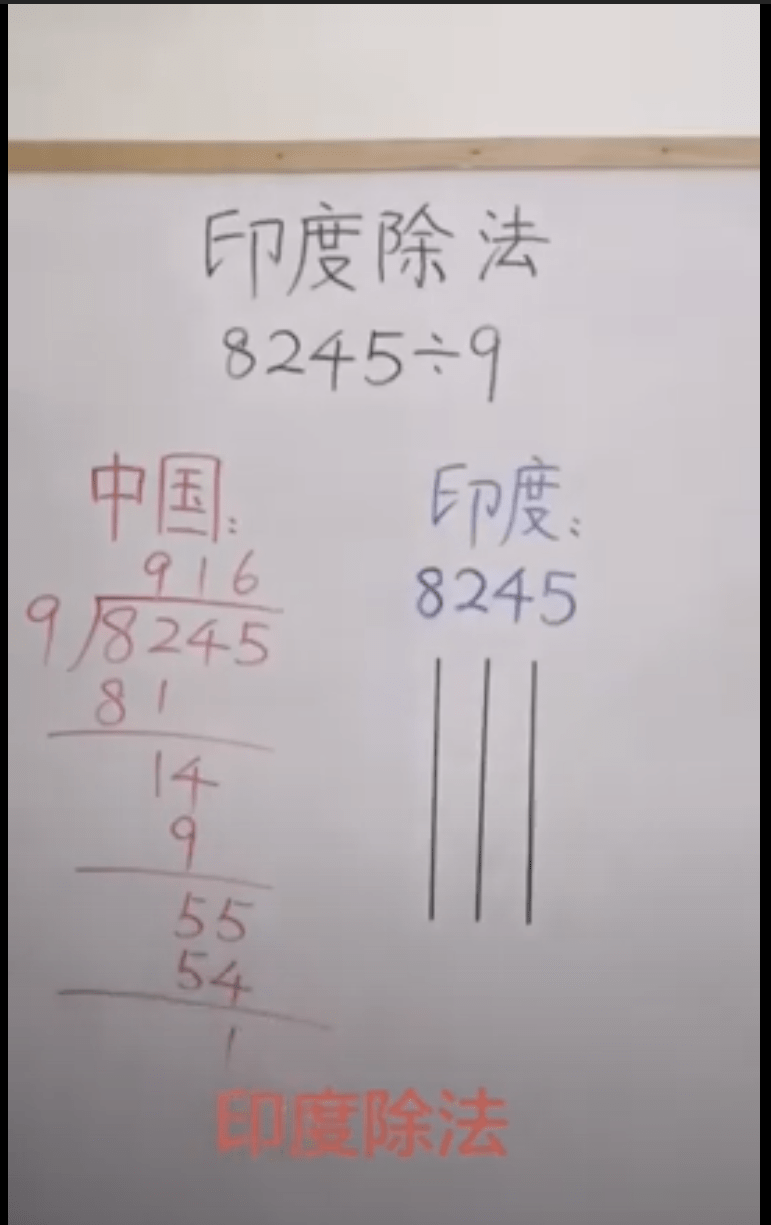 印度除法
8245÷9
中国:
916
9
8245
81
14
9
55
54
1
印度:
8245
印度除法